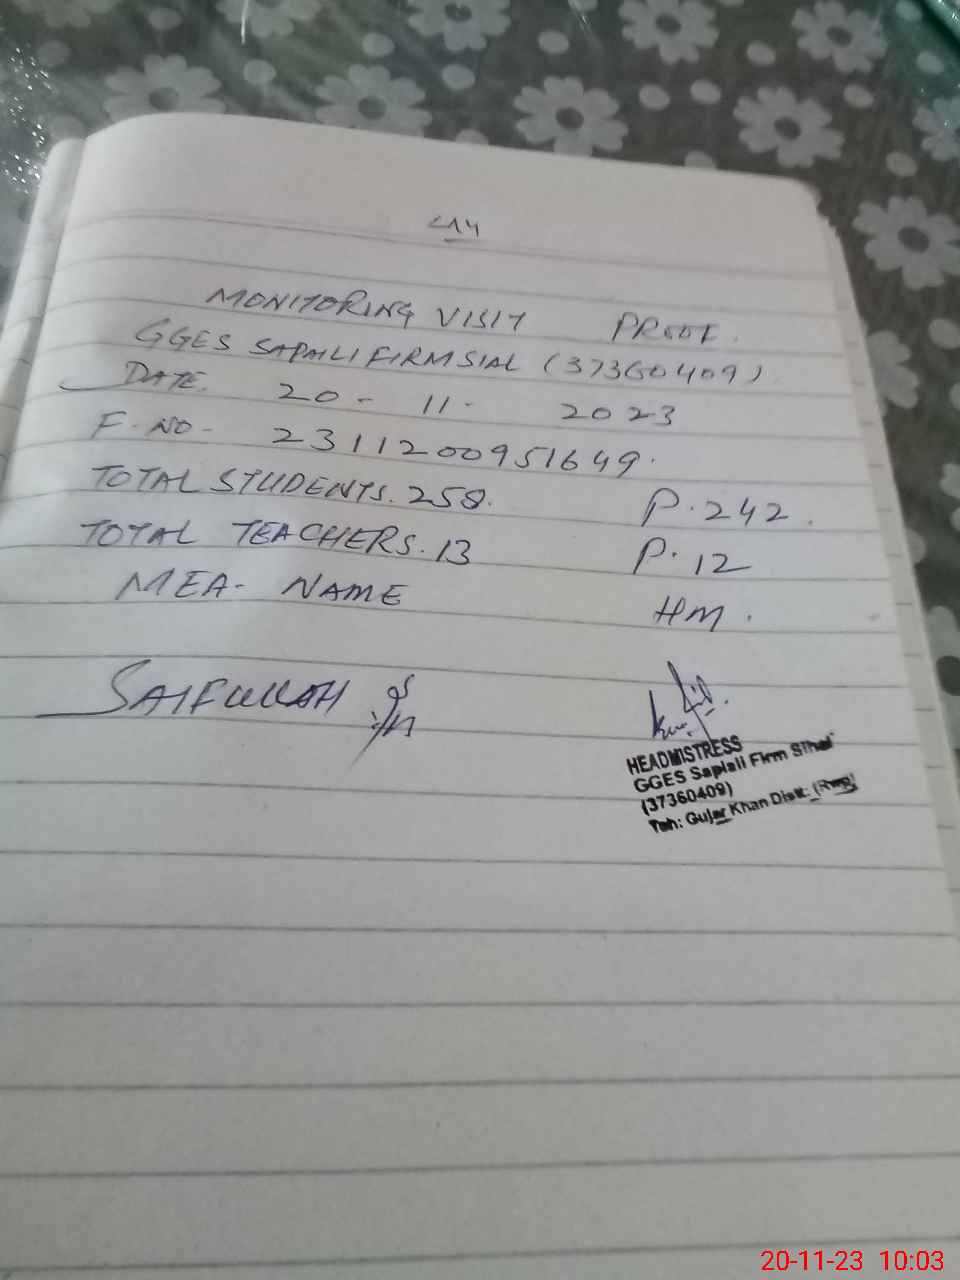 MONITORING VISIT PROOF.
GGES SAPALI FIRM SIAL (37360409)
DATE. 20 - 11 - 2023
F. NO - 2311200951649.
TOTAL STUDENTS. 258. P. 242.
TOTAL TEACHERS. 13 P. 12
MEA - NAME HM.
SAIFULLAH
HEADMISTRESS
GGES Saplali Firm Sihal
(37360409)
Teh: Gujar Khan Distt: (Rwp)
20-11-23 10:03